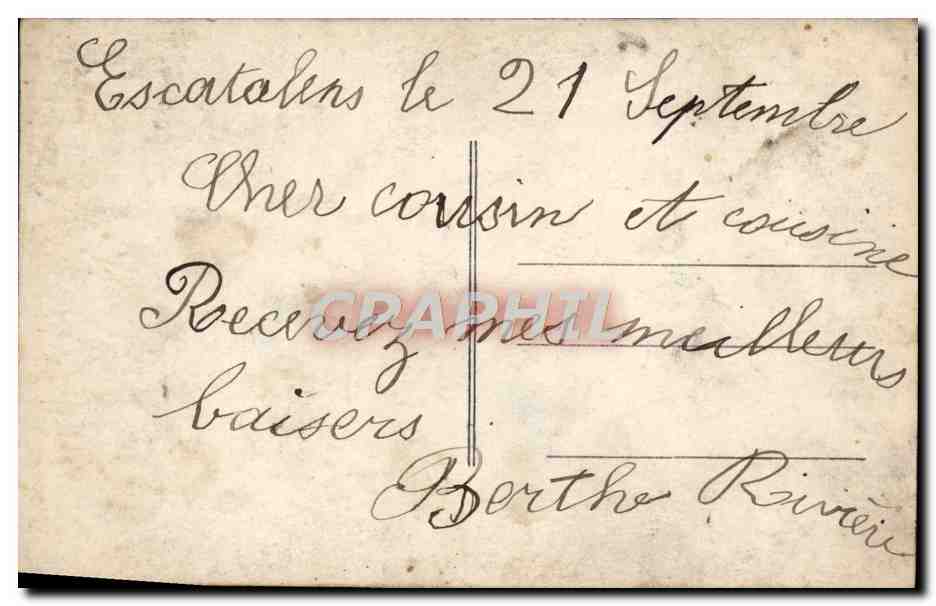 Escatalens le 21 Septembre
Cher cousin et cousine
Recevez mes meilleurs
baisers
Berthe Rivière
CPAPHIL